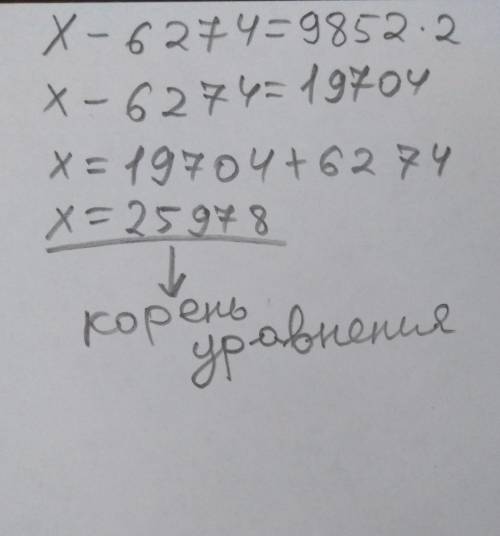 x - 6274 = 9852 · 2
x - 6274 = 19704
x = 19704 + 6274
x = 25978
корень
уравнения